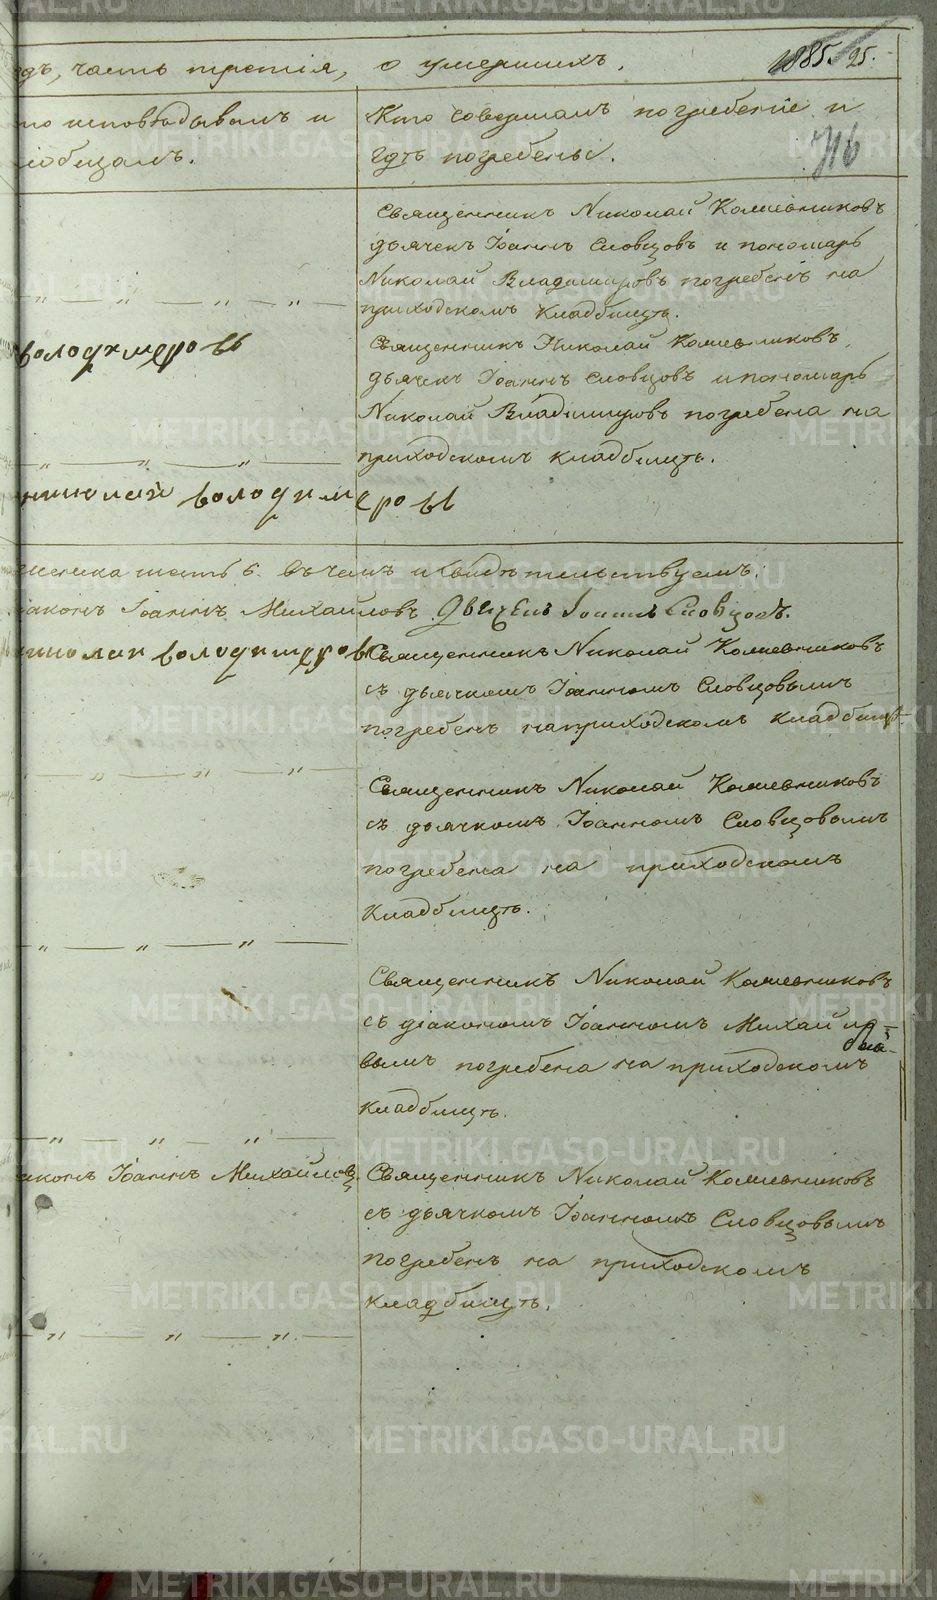 METRIKI.GASO-URAL.RU
часть третія, о умершихъ.
1885. 25.
исповѣдывалъ и
716
Кто совершалъ погребеніе и
гдѣ погребены.
Священникъ Николай
дьячекъ Іоаннъ Словцовъ и пономарь
Николай Владимировъ погребенъ на
приходскомъ кладбищѣ.
Володимеровъ
Священникъ Николай
дьячекъ Іоаннъ Словцовъ и пономарь
Николай Владимировъ погребена на
приходскомъ кладбищѣ.
николай володимеровъ
шесть 6. въ чемъ и свидѣтельствуемъ:
Іоаннъ Михайловъ Іоаннъ Словцовъ.
николай володимеровъ
Священникъ Николай
съ дьячкомъ Іоанномъ Словцовымъ
погребенъ на приходскомъ кладбищѣ
Священникъ Николай
съ дьячкомъ Іоанномъ Словцовымъ
погребена на приходскомъ
кладбищѣ.
Священникъ Николай
съ діакономъ Іоанномъ Михайло-
вымъ погребена на приходскомъ
кладбищѣ.
Іоаннъ Михайловъ.
Священникъ Николай
съ дьячкомъ Іоанномъ Словцовымъ
погребенъ на приходскомъ
кладбищѣ.